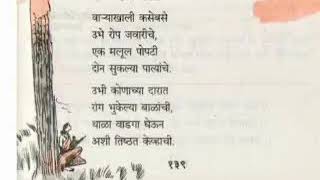 वाऱ्याखाली कसेबसे
उभे रोप जवारीचे,
एक मलूल पोपटी
दोन सुकल्या पात्यांचे.
उभी कोणाच्या दारात
रांग भुकेल्या बाळांची,
थाळा वाडगा घेऊन
अशी तिष्ठत केव्हाची.
१३९